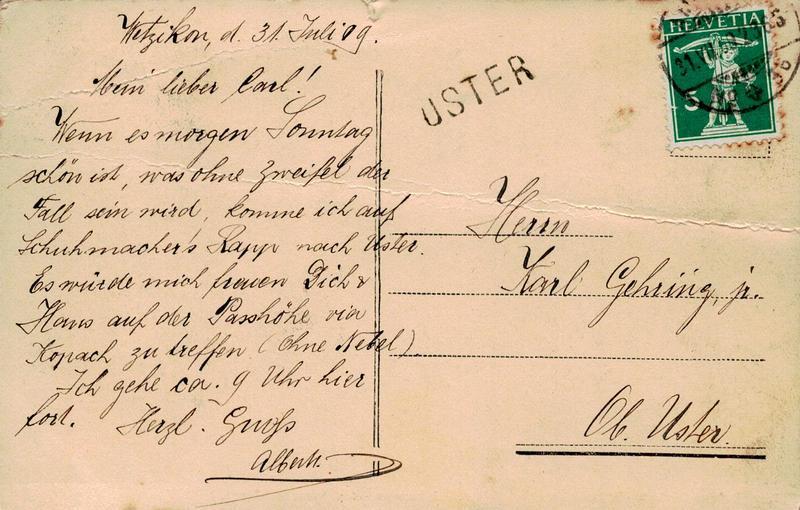 Wetzikon, d. 31. Juli 09.
Mein lieber Carl!
Wenn es morgen Sonntag
schön ist, was ohne Zweifel der
Fall sein wird, komme ich auf
Schuhmacher's Rapp nach Uster.
Es würde mich freuen Dich &
Hans auf der Passhöhe via
Kopach zu treffen (Ohne Nebel).
Ich gehe ca. 9 Uhr hier
fort. Herzl. Gruss
Albert.
USTER
HELVETIA
5
Herrn
Karl Gehring, jr.
Ob. Uster.